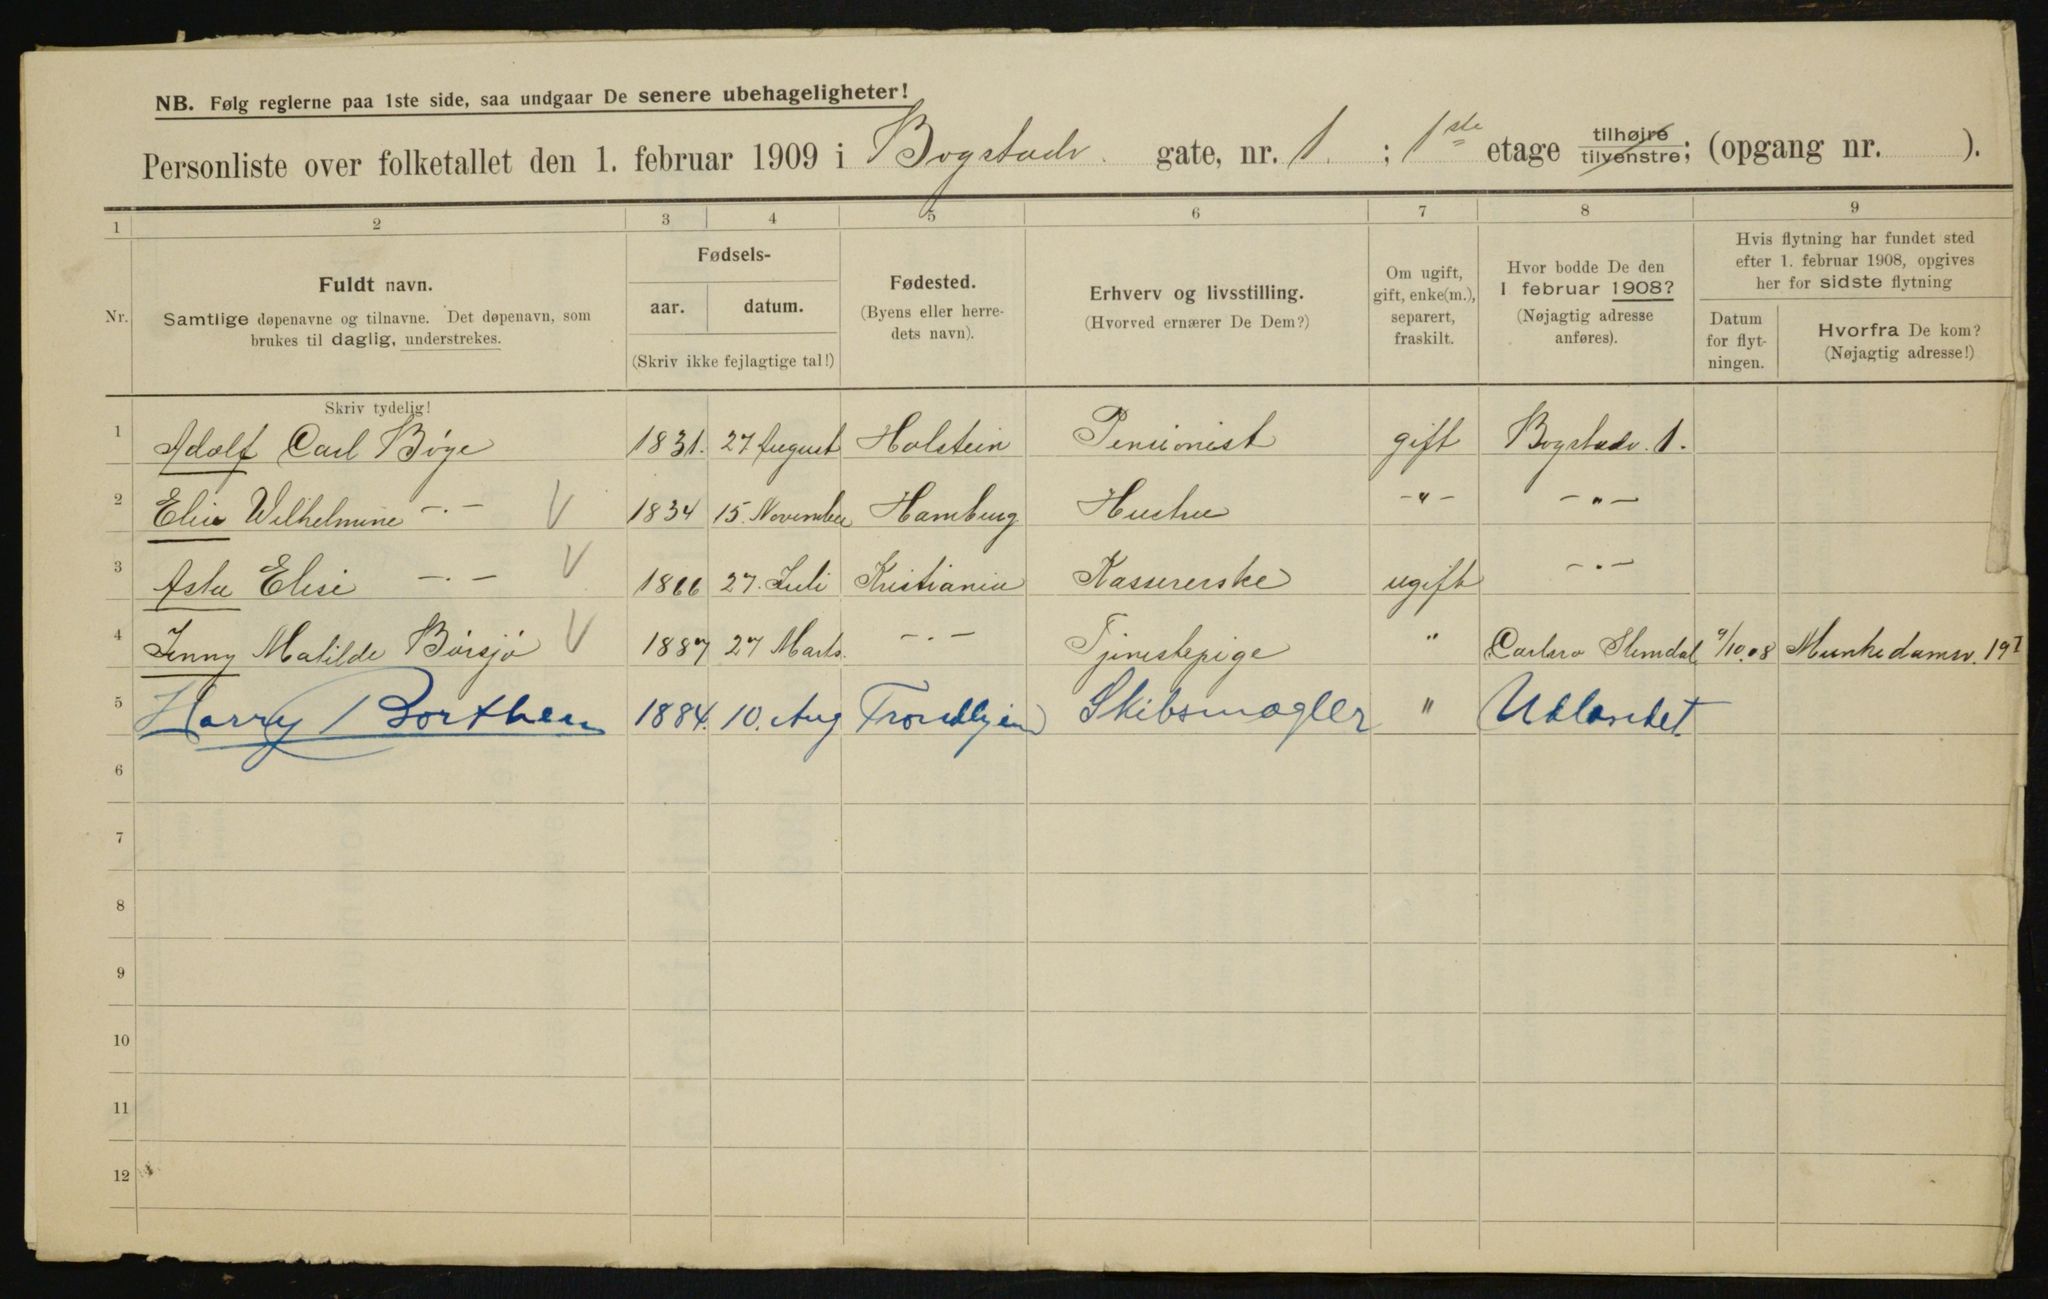 NB. Følg reglerne paa 1ste side, saa undgaar De senere ubehageligheter!
Personliste over folketallet den 1. februar 1909 i Bogstadv. gate, nr. 1 ; 1ste etage tilhøjre tilvenstre; (opgang nr. ).
1 2 3 4 5 6 7 8 9
Nr. Fuldt navn. Samtlige døpenavne og tilnavne. Det døpenavn, som brukes til daglig, understrekes.
Fødsels-
aar. datum.
(Skriv ikke fejlagtige tal!)
Fødested. (Byens eller herredets navn).
Erhverv og livsstilling. (Hvorved ernærer De Dem?)
Om ugift, gift, enke(m.), separert, fraskilt.
Hvor bodde De den 1 februar 1908? (Nøjagtig adresse anføres).
Hvis flytning har fundet sted efter 1. februar 1908, opgives her for sidste flytning
Datum for flytningen. Hvorfra De kom? (Nøjagtig adresse!)
Skriv tydelig!
1 Adolf Carl Bøge 1831. 27 August Holstein Pensionist gift Bogstadv. 1.
2 Elise Wilhelmine -"- 1834 15. November Hamburg Hustru -"- -"-
3 Asta Elise -"- 1866 27. Juli Kristiania Kassererske ugift -"-
4 Jenny Matilde Børsjø 1887 27 Marts. -"- Tjenestepige " Carlsro Slemdal 9/10.08 Munkedamsv. 19
5 Harry Borthen 1884. 10. Aug Trondhjem Skibsmægler " Udlandet.
6
7
8
9
10
11
12